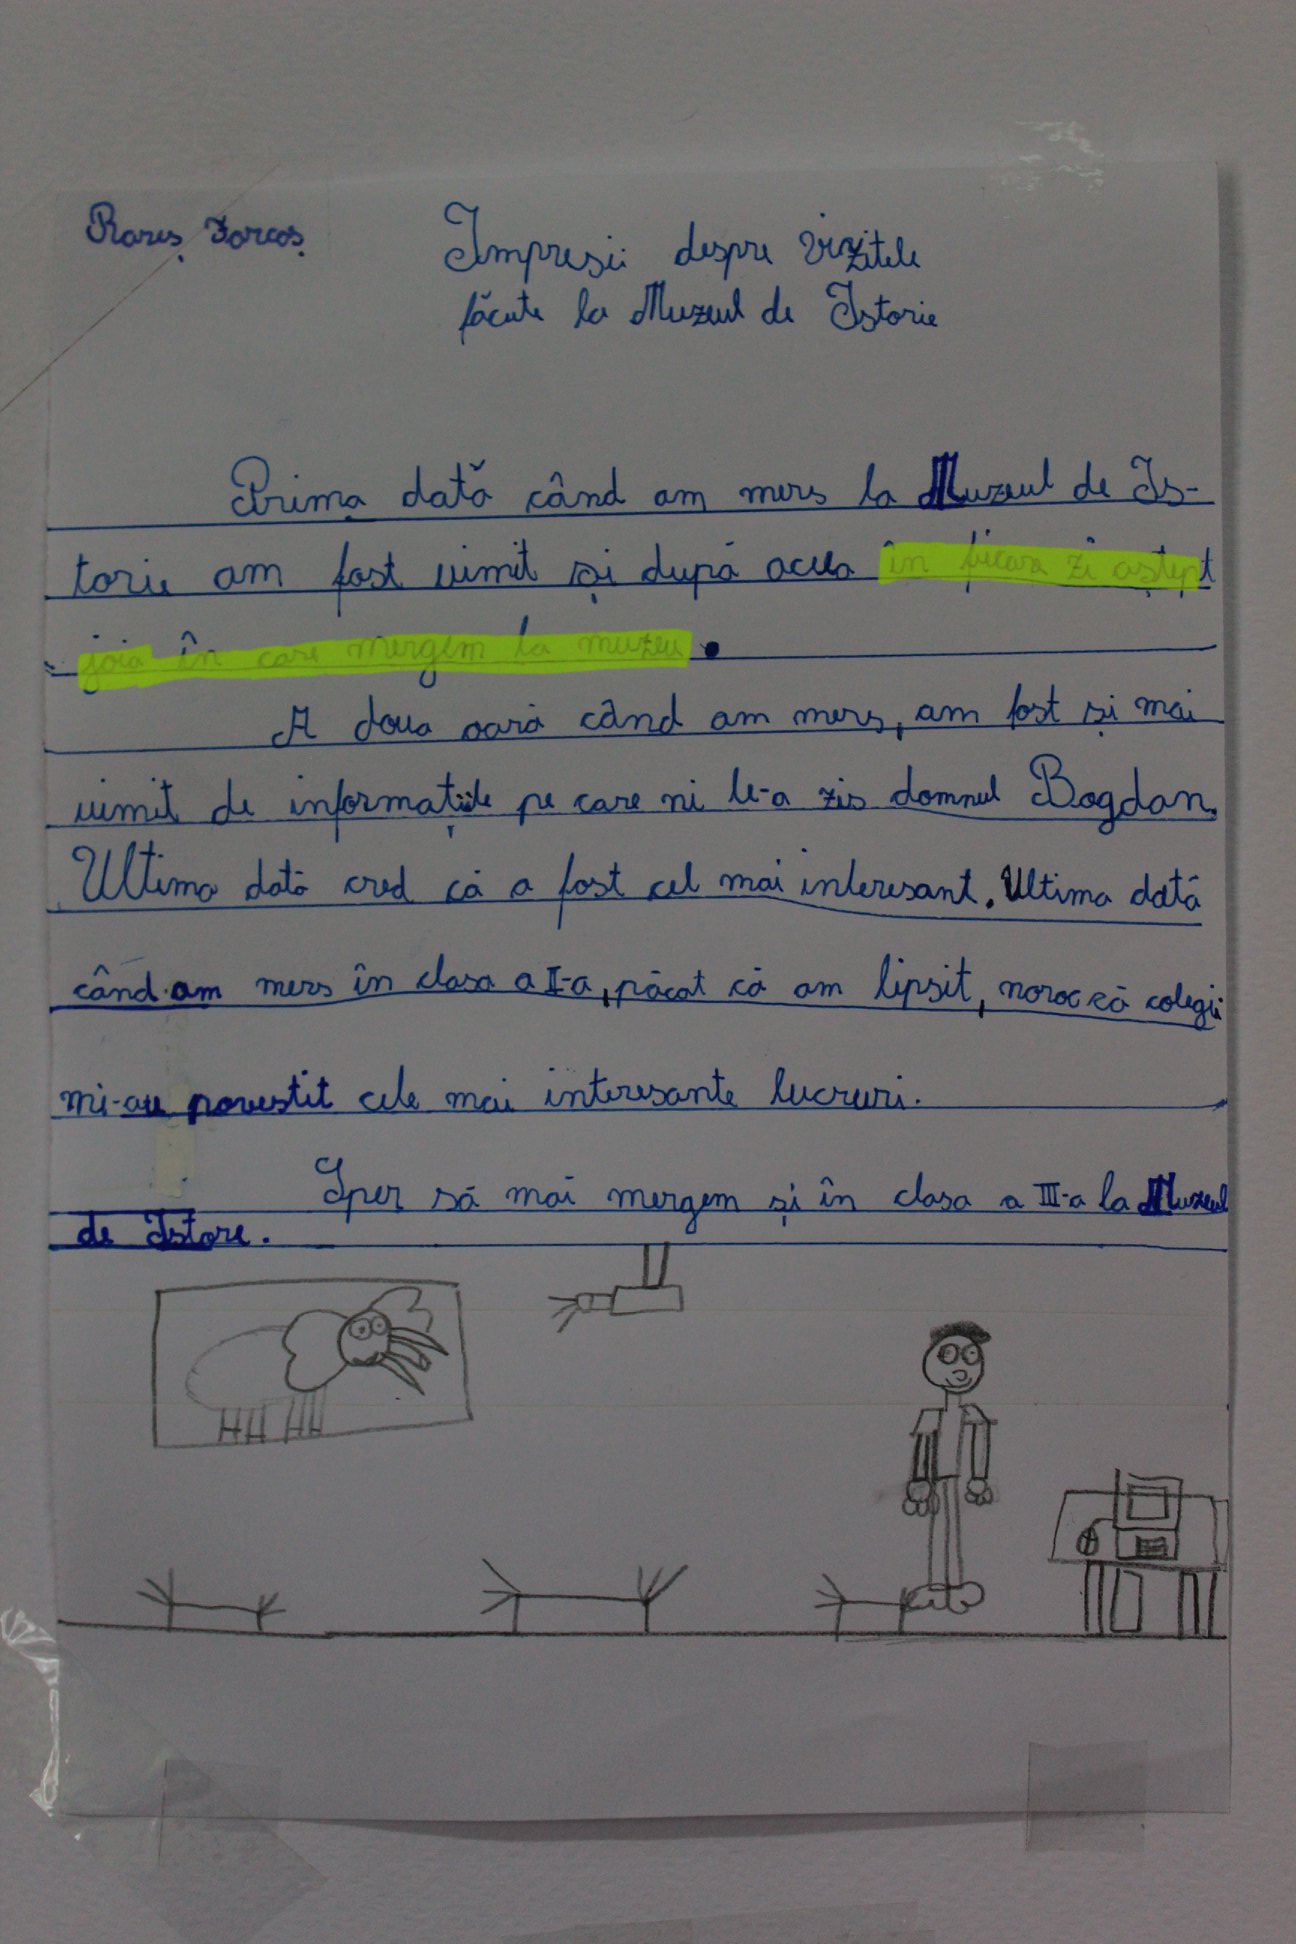 Rareș Farcaș
Impresii despre vizitele
făcute la Muzeul de Istorie
Prima dată când am mers la Muzeul de Is-
torie am fost uimit și după aceea în fiecare zi aștept
joia în care mergem la muzeu.
A doua oară când am mers, am fost și mai
uimit de informațiile pe care ni le-a zis domnul Bogdan.
Ultima dată cred că a fost cel mai interesant. Ultima dată
când am mers în clasa a II-a, păcat că am lipsit, noroc că colegii
mi-au povestit cele mai interesante lucruri.
Sper să mai mergem și în clasa a III-a la Muzeul
de Istore.